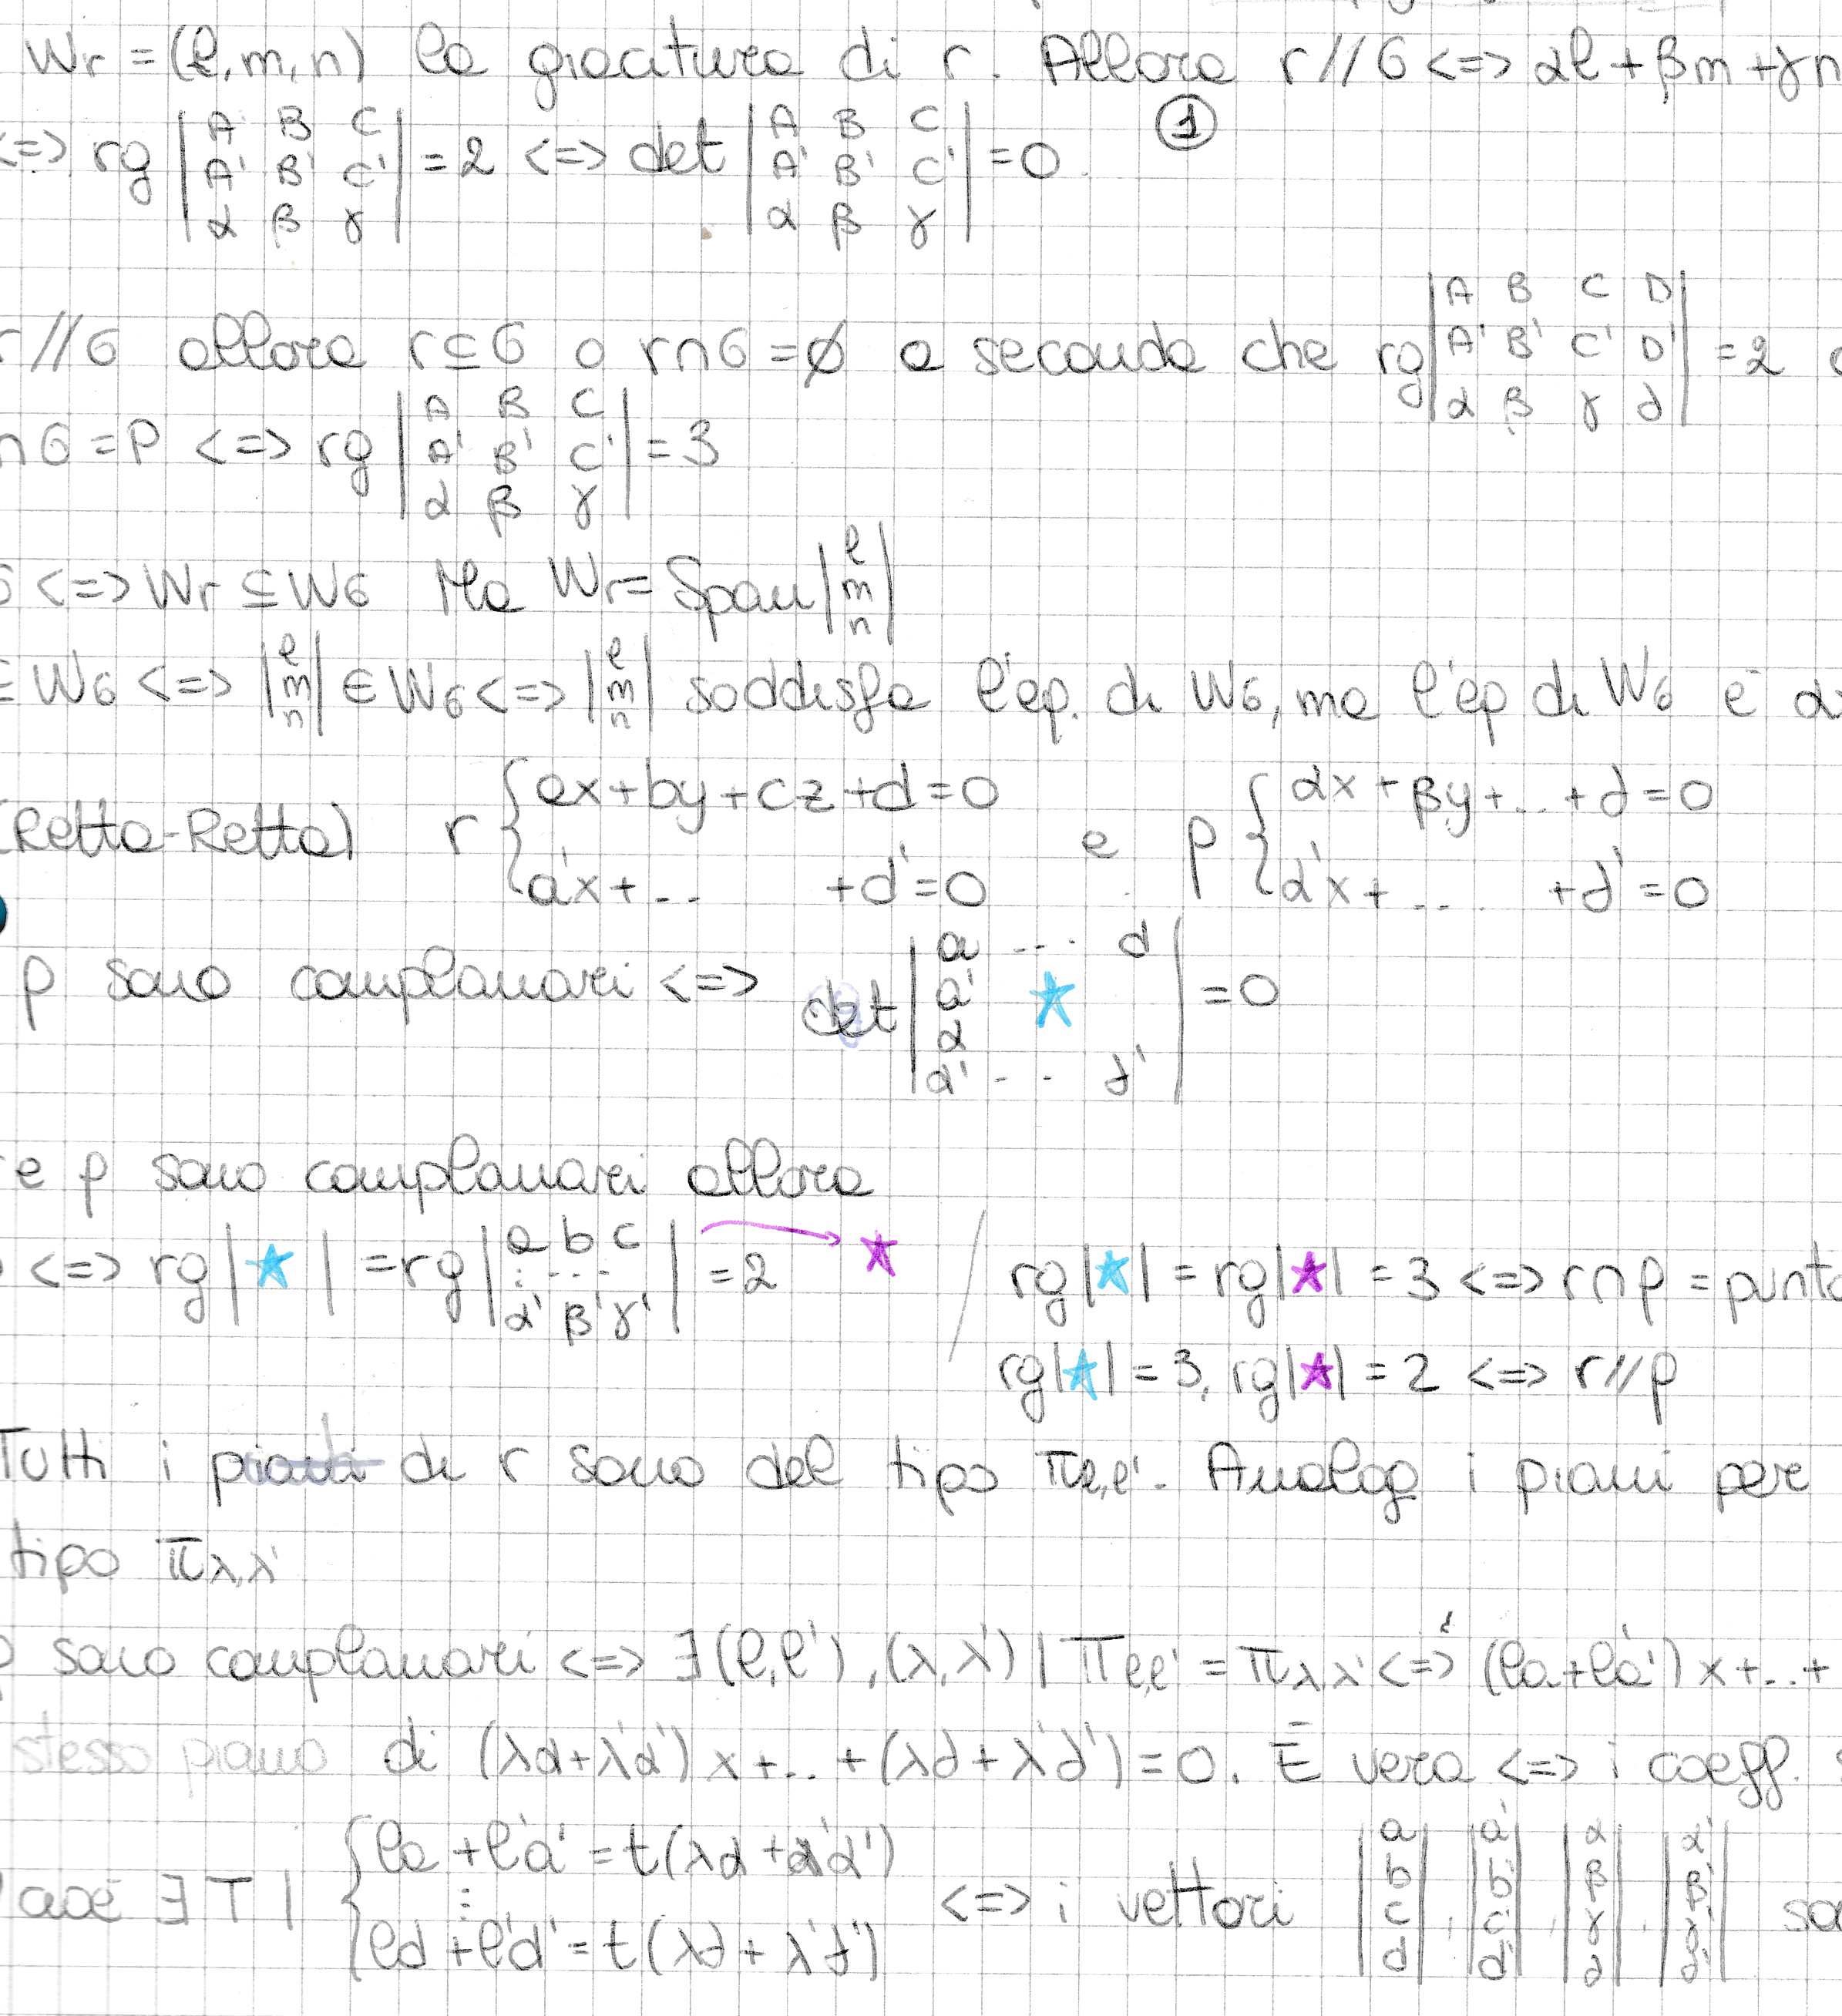 Wr = (l, m, n) la giacitura di r. Allora r // б <=> αl + βm + γn
①
<=> rg |A B C; A' B' C'; α β γ| = 2 <=> det |A B C; A' B' C'; α β γ| = 0.
r // б allora r ⊆ б o r∩б = ∅ a seconda che rg |A B C D; A' B' C' D'; α β γ δ| = 2
∩б = P <=> rg |A B C; A' B' C'; α β γ| = 3
б <=> Wr ⊆ Wб Ma Wr = Span |l m n|
∈ Wб <=> |l m n| ∈ Wб <=> |l m n| soddisfa l'eq. di Wб, ma l'eq di Wб è α
(Retta-Retta) r { ax + by + cz + d = 0; a'x + .. + d' = 0 e ρ { αx + βy + .. + δ = 0; α'x + ... + δ' = 0
ρ sono complanari <=> det |a ... d; a' ★; α; α' .. δ'| = 0
e ρ sono complanari allora
<=> rg |★| = rg |a b c; : ...; α' β' γ'| = 2 → ★ / rg|★| = rg|★| = 3 <=> r∩ρ = punto
rg|★| = 3, rg|★| = 2 <=> r // ρ
Tutti i piani di r sono del tipo πl,l'. Analog i piani per
tipo πλ,λ'
sono complanari <=> ∃(l,l'), (λ,λ') | πl,l' = πλ,λ' <=> (la + l'a') x + .. +
stesso piano di (λα + λ'α') x + .. + (λδ + λ'δ') = 0. È vera <=> i coeff.
cioè ∃ T | { la + l'a' = t(λα + λ'α'); ⋮; ld + l'd' = t(λδ + λ'δ') <=> i vettori |a b c d|, |a' b' c' d'|, |α β γ δ|, |α' β' γ' δ'|